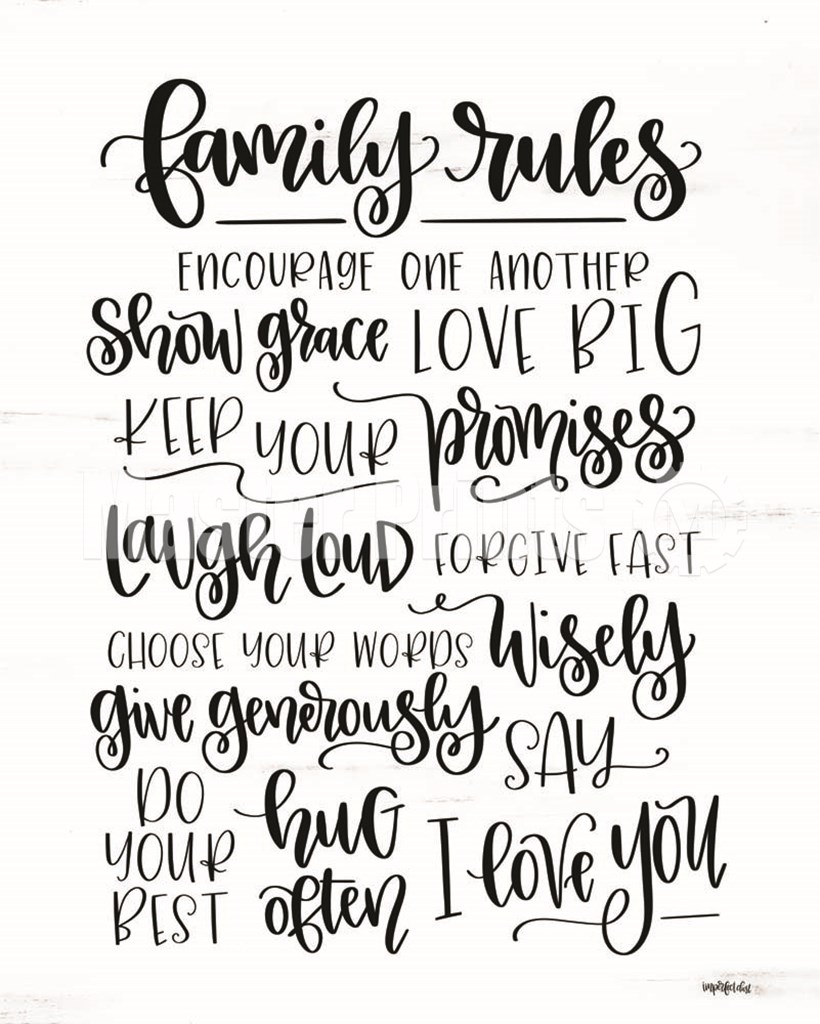 family rules
ENCOURAGE ONE ANOTHER
Show grace LOVE BIG
KEEP YOUR promises
Laugh Loud FORGIVE FAST
CHOOSE YOUR WORDS Wisely
give generously
SAY
DO YOUR BEST
hug often
I love you
Master Prints
imperfect dust